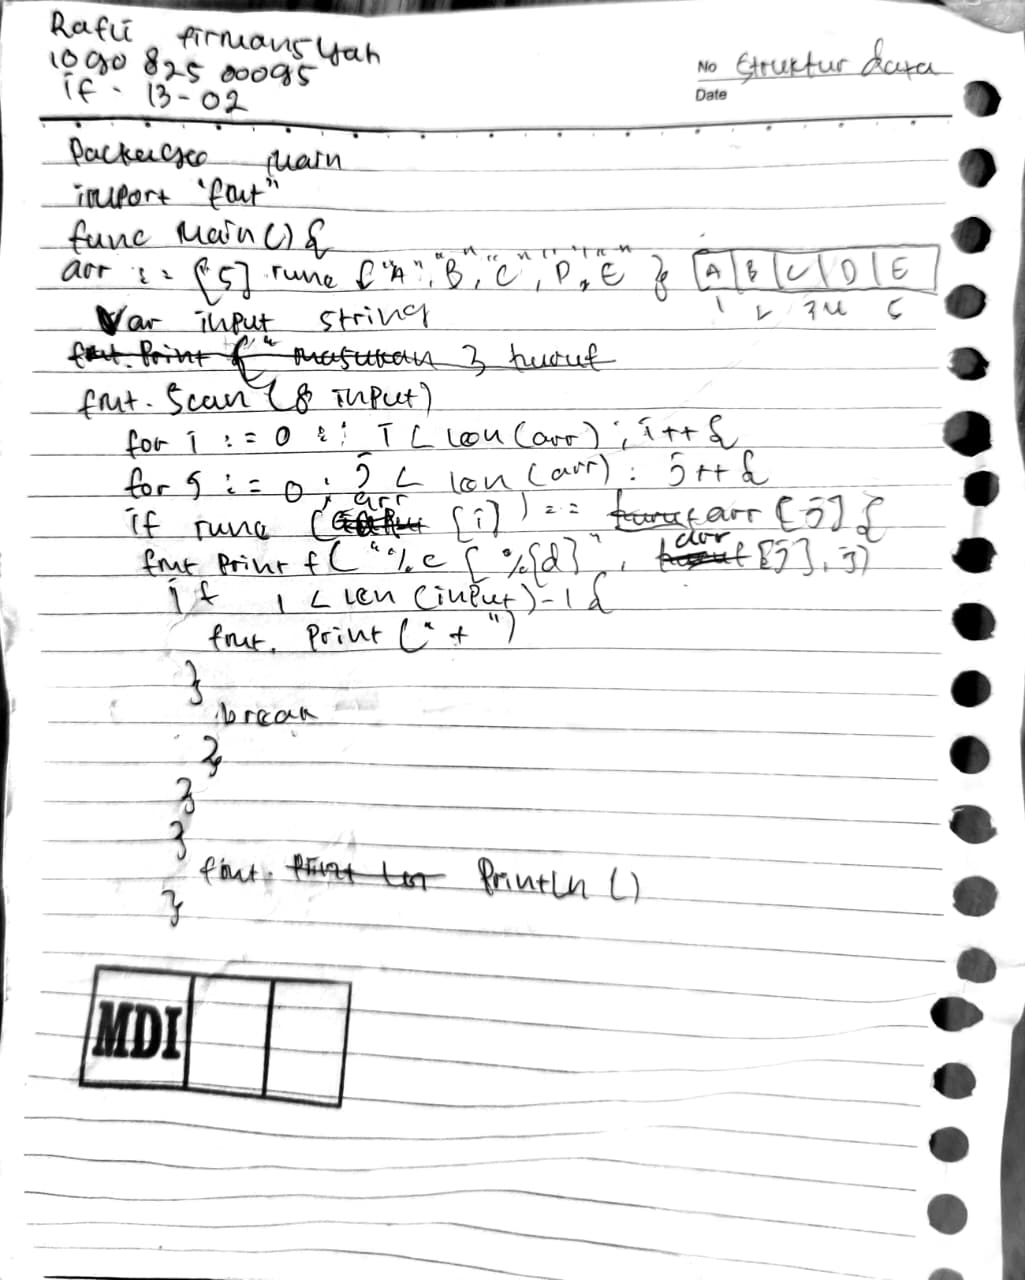 Rafli firmansyah
1090 825 00095
if - 13-02
No Struktur data
Date
Packergeo Main
import "fmt"
func Main() {
arr := [5] rune {"A", "B", "C", "D", "E"} A B C D E
1 2 3 4 5
Var input string
fmt. Print ( " masukan 3 huruf
fmt. Scan (& input)
for i := 0 ; i < len (arr) ; i++ {
for j := 0 ; j < len (arr) : j++ {
if rune (arr [i]) == arr [j] {
fmt Print f ( "%c [ %{d}", arr [j], j)
if i < len (input)-1 {
fmt. Print (" + ")
}
break
}
}
}
fmt. Println ()
}
MDI